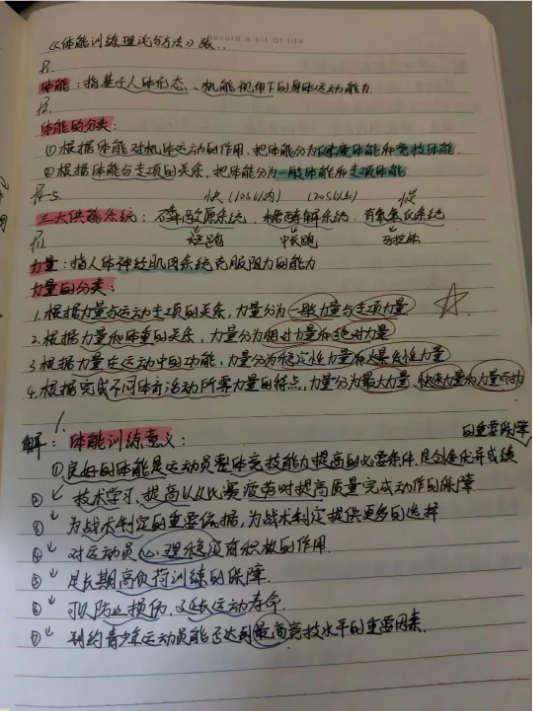 《体能训练理论与方法》张..
Record A bit Of life
体能：指基于人体形态、机能视角下的身体运动能力
体能的分类：
①根据体能对机体运动的作用，把体能分为健康体能和竞技体能.
②根据体能与专项的关系，把体能分为一般体能和专项体能
快（10s以内）（20s以上）慢
三大供能系统：磷酸原系统、糖酵解系统、有氧氧化系统
短跑 中长跑 马拉松
力量：指人体神经肌肉系统克服阻力的能力
力量的分类：
1.根据力量与运动专项的关系，力量分为一般力量与专项力量
2.根据力量和体重的关系，力量分为相对力量和绝对力量
3.根据力量在运动中的功能，力量分为稳定性力量和爆发性力量
4.根据完成不同体育活动所需力量的特点，力量分为最大力量、快速力量和力量耐力
解：体能训练意义：
的重要保障
①良好的体能是运动员整体竞技能力提高的必要条件，是创造优异成绩
② 〃 技术学习、提高以及比赛疲劳时提高质量完成动作的保障
③ 〃 为战术制定的重要依据，为战术制定提供更多的选择
④ 〃 对运动员心理稳定有积极的作用.
⑤ 〃 是长期高负荷训练的保障.
⑥ 〃 可以防止损伤，延长运动寿命.
⑦ 〃 制约青少年运动员能否达到最高竞技水平的重要因素.